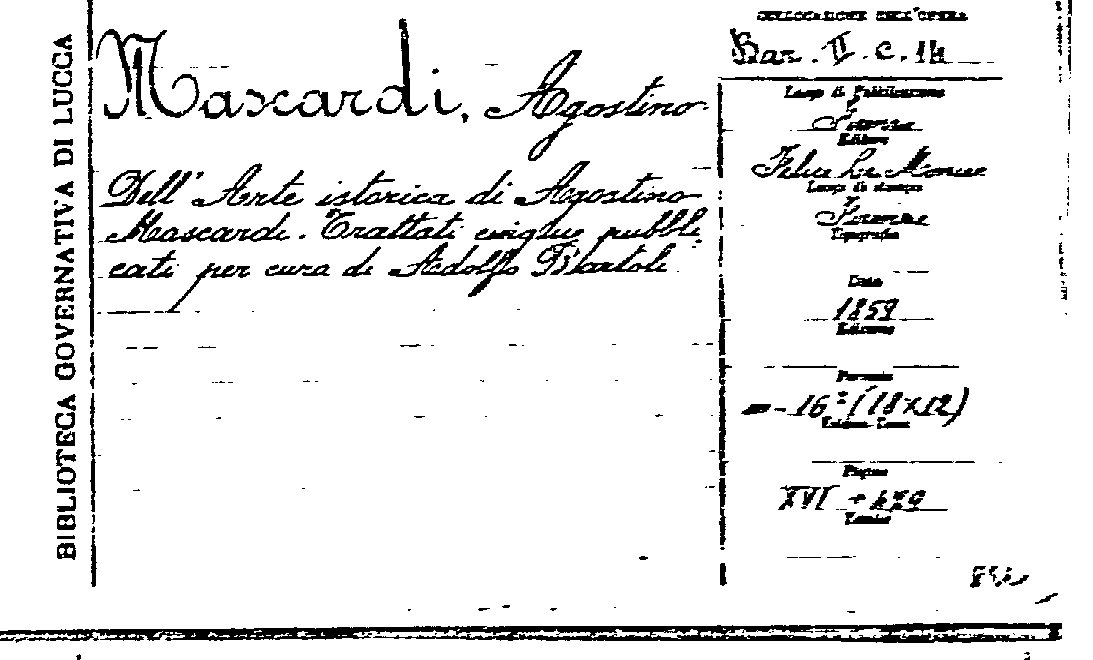 BIBLIOTECA GOVERNATIVA DI LUCCA
Mascardi, Agostino
Dell' Arte istorica di Agostino
Mascardi. Trattati cinque pubbli
cati per cura di Adolfo Bartoli
COLLOCAZIONE DELL'OPERA
Bar. II. c. 14
Luogo di Pubblicazione
Firenze
Editore
Felice Le Monnier
Luogo di stampa
Firenze
Tipografia
Data
1859
Edizione
Formato
16° (18x12)
Pagine
XVI +